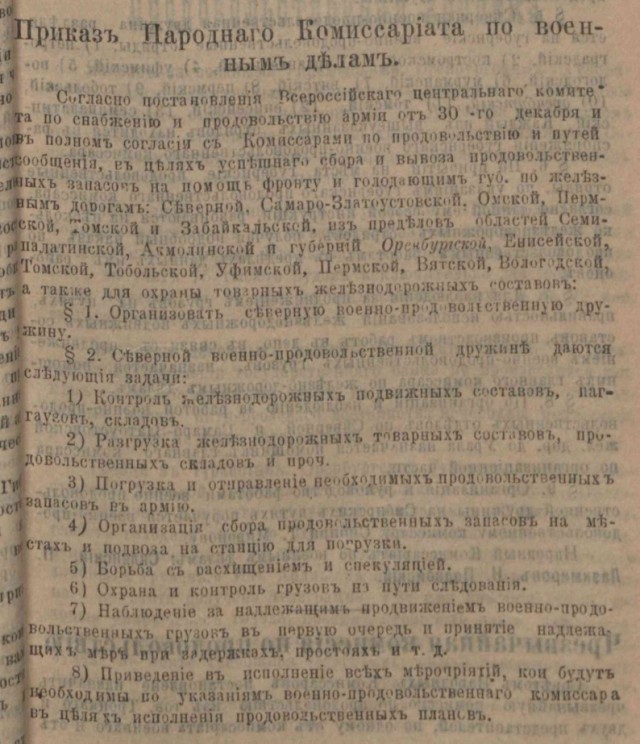 Приказъ Народнаго Комиссаріата по воен-
нымъ дѣламъ.
Согласно постановленія Всероссійскаго центральнаго комите-
та по снабженію и продовольствію арміи отъ 30-го декабря и
въ полномъ согласіи съ Комиссарами по продовольствію и путей
сообщенія, въ цѣляхъ успѣшнаго сбора и вывоза продовольствен-
ныхъ запасовъ на помощь фронту и голодающимъ губ. по желѣз-
нымъ дорогамъ: Сѣверной, Самаро-Златоустовской, Омской, Перм-
ской, Томской и Забайкальской, изъ предѣловъ областей Семи-
палатинской, Акмолинской и губерній Оренбургской, Енисейской,
Томской, Тобольской, Уфимской, Пермской, Вятской, Вологодской,
а также для охраны товарныхъ желѣзнодорожныхъ составовъ:
§ 1. Организовать сѣверную военно-продовольственную дру-
жину.
§ 2. Сѣверной военно-продовольственной дружинѣ даются
слѣдующія задачи:
1) Контроль желѣзнодорожныхъ подвижныхъ составовъ, паг-
гаузовъ, складовъ.
2) Разгрузка желѣзнодорожныхъ товарныхъ составовъ, про-
довольственныхъ складовъ и проч.
3) Погрузка и отправленіе необходимыхъ продовольственныхъ
запасовъ въ армію.
4) Организація сбора продовольственныхъ запасовъ на мѣ-
стахъ и подвоза на станцію для погрузки.
5) Борьба съ расхищеніемъ и спекуляціей.
6) Охрана и контроль грузовъ на пути слѣдованія.
7) Наблюденіе за надлежащимъ продвиженіемъ военно-продо-
вольственныхъ грузовъ въ первую очередь и принятіе надлежа-
щихъ мѣръ при задержкахъ, простояхъ и т. д.
8) Приведеніе въ исполненіе всѣхъ мѣрочріятій, кои будутъ
необходимы по указаніямъ военно-продовольственнаго комиссара
въ цѣляхъ исполненія продовольственныхъ плановъ.